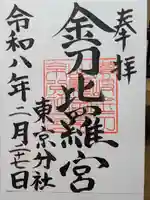 奉拝
金刀比羅宮
東京分社
令和八年二月二七日